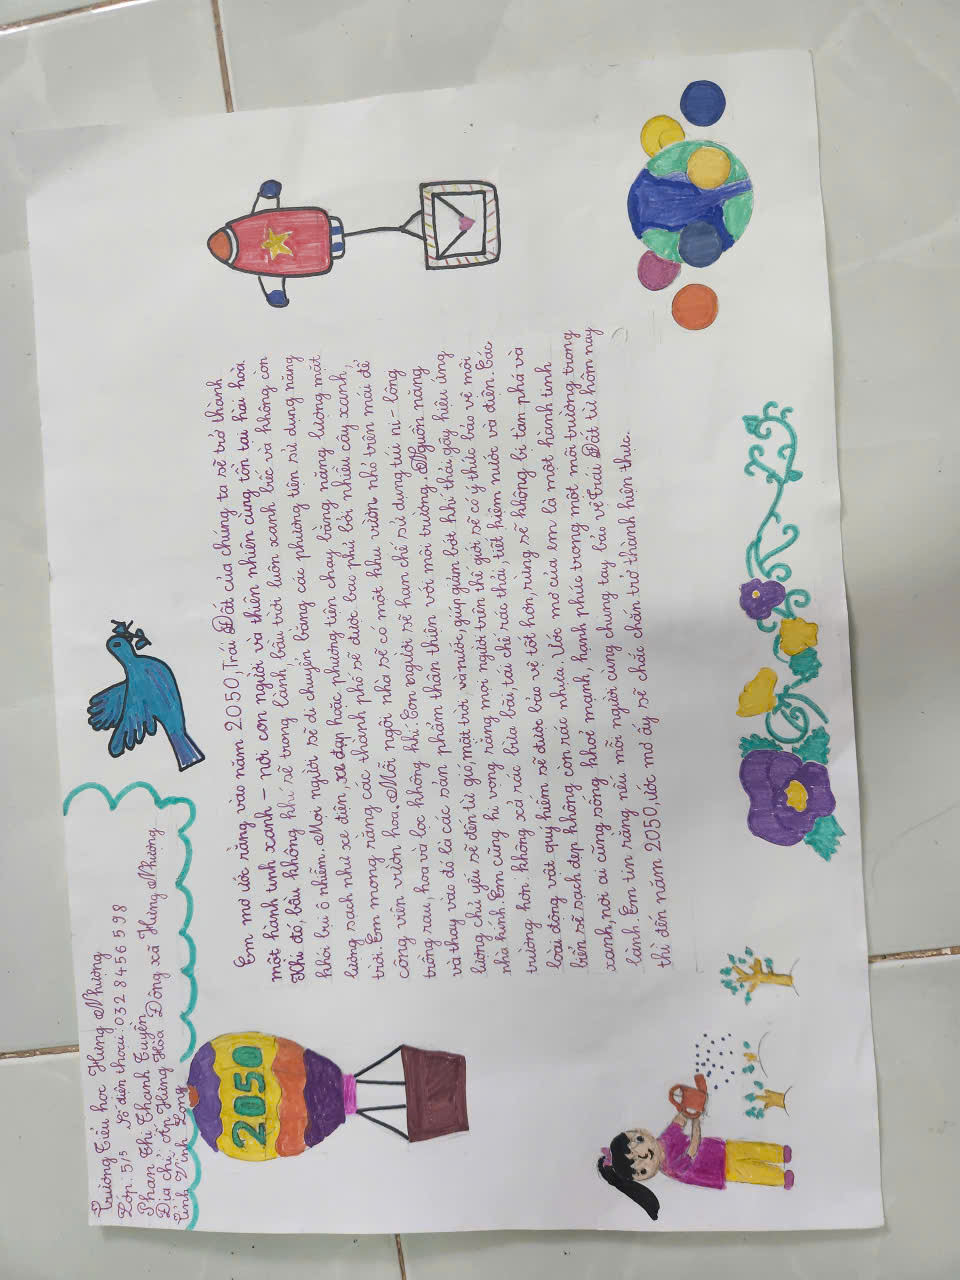 Trường Tiểu học Hưng Nhượng
Lớp: 5/5 Số điện thoại: 0328456598
Phan Thị Thanh Tuyền
Địa chỉ: Ấp Hưng Hoà Đông xã Hưng Nhượng
tỉnh Vĩnh Long
2050
Em mơ ước rằng vào năm 2050, Trái Đất của chúng ta sẽ trở thành
một hành tinh xanh – nơi con người và thiên nhiên cùng tồn tại hài hoà.
Khi đó, bầu không khí sẽ trong lành, bầu trời luôn xanh biếc và không còn
khói bụi ô nhiễm. Mọi người sẽ di chuyển bằng các phương tiện sử dụng năng
lượng sạch như xe điện, xe đạp hoặc phương tiện chạy bằng năng lượng mặt
trời. Em mong rằng các thành phố sẽ được bao phủ bởi nhiều cây xanh,
công viên, vườn hoa. Mỗi ngôi nhà sẽ có một khu vườn nhỏ trên mái để
trồng rau, hoa và lọc không khí. Con người sẽ hạn chế sử dụng túi ni-lông
và thay vào đó là các sản phẩm thân thiện với môi trường. Nguồn năng
lượng chủ yếu sẽ đến từ gió, mặt trời, và nước, giúp giảm bớt khí thải gây hiệu ứng
nhà kính. Em cũng hi vọng rằng mọi người trên thế giới sẽ có ý thức bảo vệ môi
trường hơn: không xả rác bừa bãi, tái chế rác thải, tiết kiệm nước và điện. Các
loài động vật quý hiếm sẽ được bảo vệ tốt hơn, rừng sẽ không bị tàn phá và
biển sẽ sạch đẹp không còn rác nhựa. Ước mơ của em là một hành tinh
xanh, nơi ai cũng sống khoẻ mạnh, hạnh phúc trong một môi trường trong
lành. Em tin rằng nếu mỗi người cùng chung tay bảo vệ Trái Đất từ hôm nay
thì đến năm 2050, ước mơ ấy sẽ chắc chắn trở thành hiện thực.